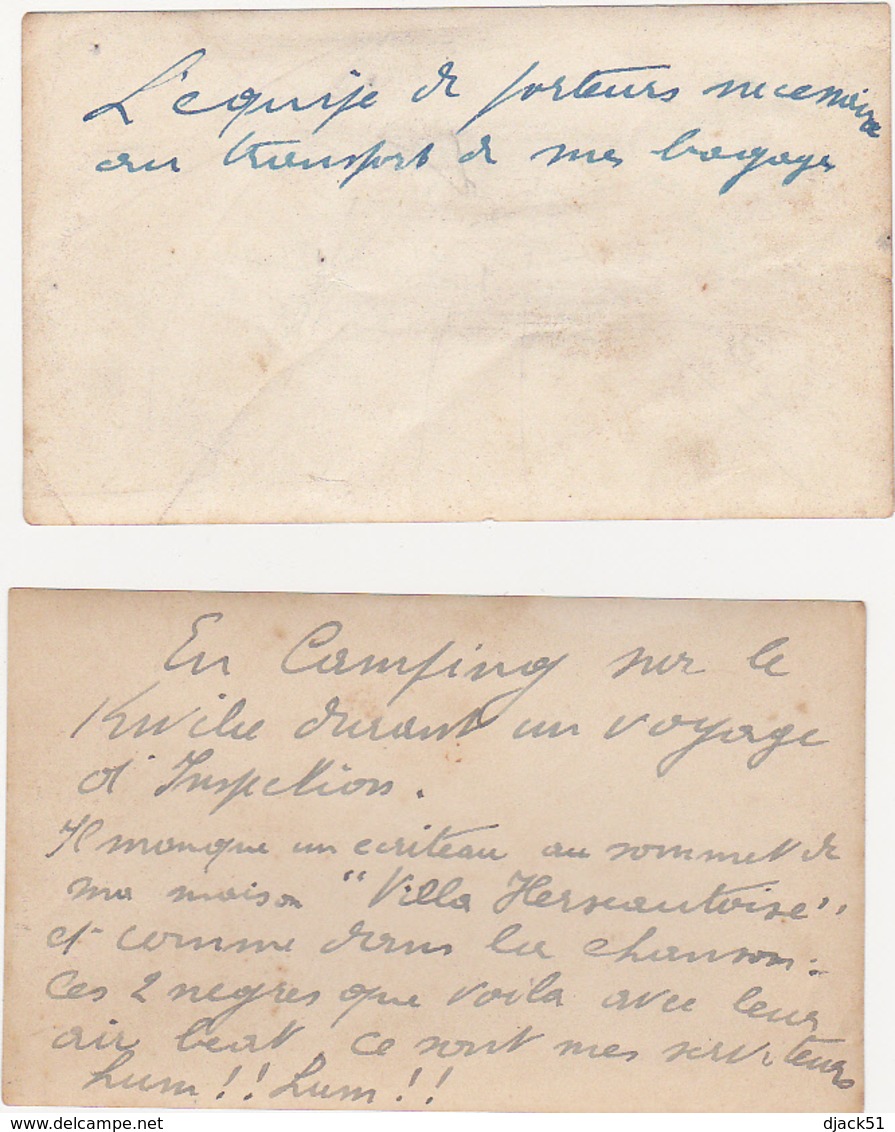 L'equipe de porteurs necessaire
au transport de mes bagages
En Camping sur le
Kwilu durant un voyage
d'Inspection.
Il manque un ecriteau au sommet de
ma maison "Villa Herseautoise"
et comme dans la chanson :
Ces 2 negres que voila avec leur
air beat, ce sont mes serviteurs
hum !! hum !!
djack51